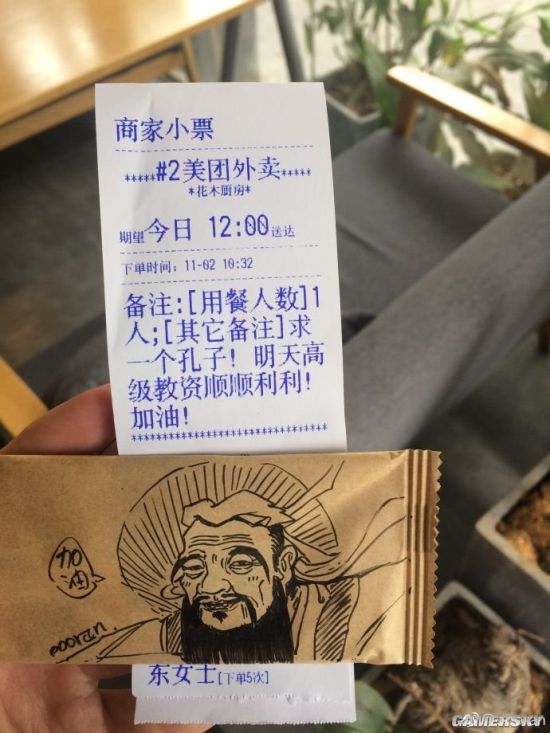 商家小票
*****#2美团外卖*****
*花木厨房*
期望今日 12:00送达
下单时间: 11-02 10:32
备注:[用餐人数]1
人;[其它备注]求
一个孔子! 明天高
级教资顺顺利利!
加油!
加油
东女士[下单5次]
GAMERSKY